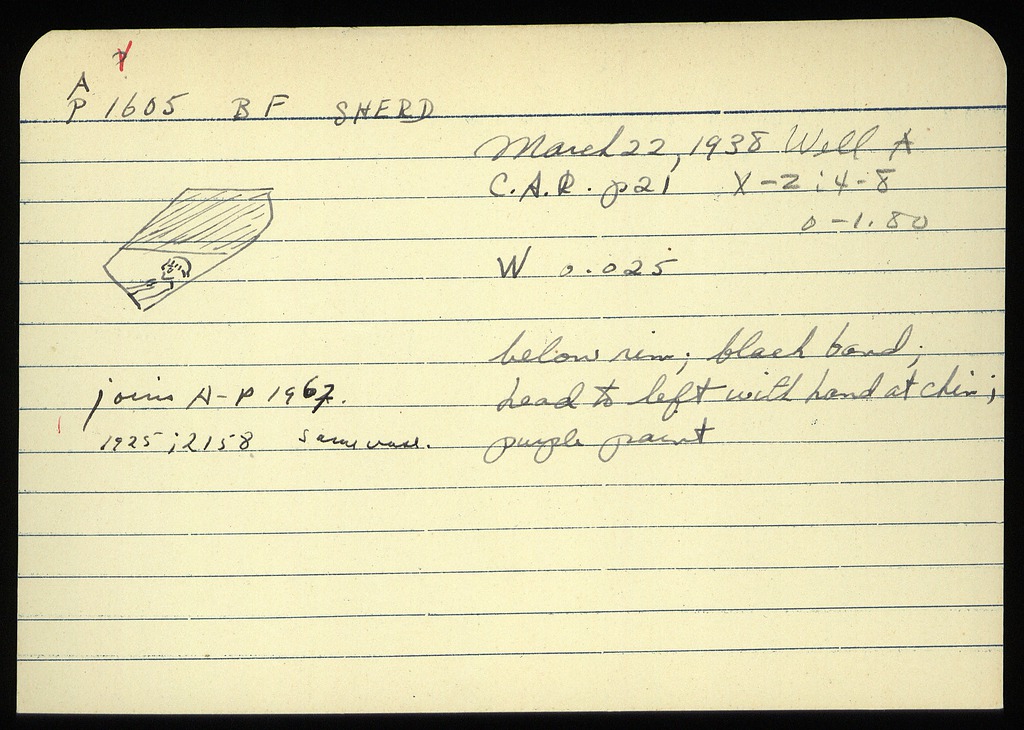 A
P 1605 BF SHERD
March 22, 1938 Well A
C.A.R. p21 X-2:4-8
0-1.80
W 0.025
below rim; black band;
joins A-P 1967.
head to left with hand at chin;
1925; 2158 same vase.
purple paint